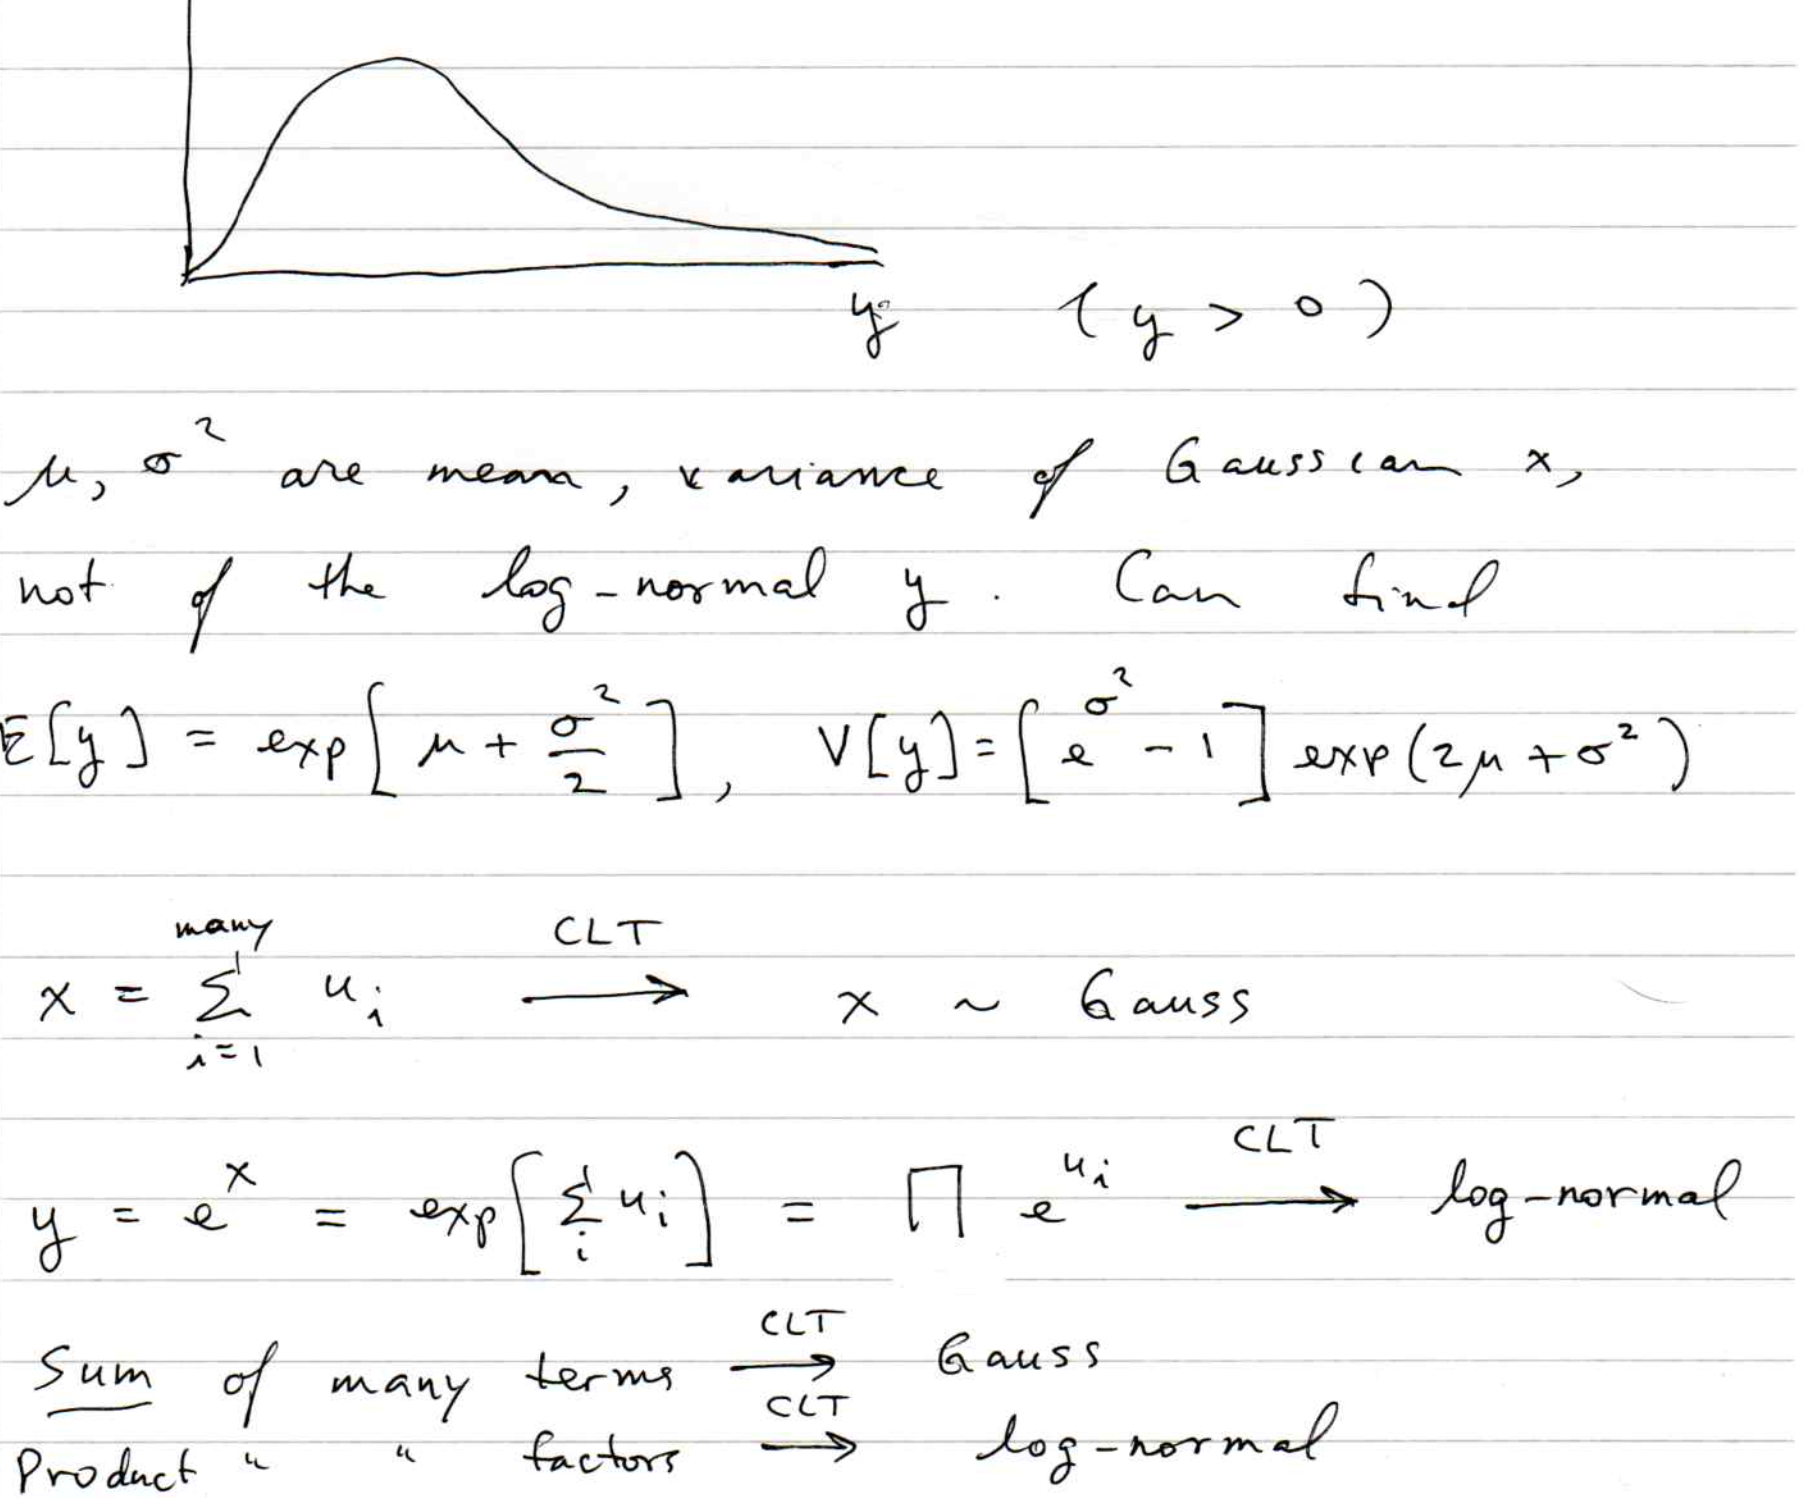 y (y > 0)
μ, σ² are mean, variance of Gaussian x,
not of the log-normal y. Can find
E[y] = exp[μ + σ²/2], V[y] = [e^σ² - 1] exp(2μ + σ²)
many
x = Σ u_i ⟶ x ~ Gauss
i=1
CLT
y = e^x = exp[Σ_i u_i] = ∏ e^u_i ⟶ log-normal
CLT
Sum of many terms ⟶ Gauss
CLT
Product " " factors ⟶ log-normal
CLT